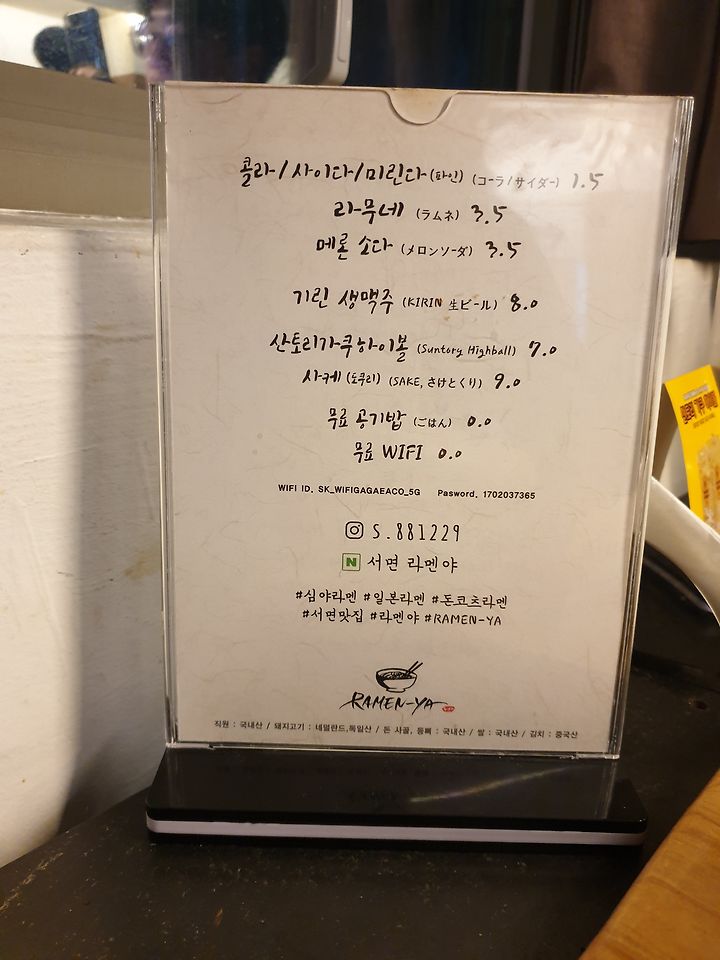 콜라/사이다/미린다(파인) (コーラ/サイダー) 1.5
라무네 (ラムネ) 3.5
메론 소다 (メロンソーダ) 3.5
기린 생맥주 (KIRIN 生ビール) 8.0
산토리가쿠하이볼 (Suntory Highball) 7.0
사케(도쿠리) (SAKE, さけとくり) 9.0
무료 공기밥 (ごはん) 0.0
무료 WIFI 0.0
WIFI ID. SK_WIFIGAGAEACO_5G Pasword. 1702037365
S.881229
N 서면 라멘야
#심야라멘 #일본라멘 #돈코츠라멘
#서면맛집 #라멘야 #RAMEN-YA
RAMEN-YA
직원 : 국내산 / 돼지고기 : 네덜란드,독일산 / 돈 사골, 등뼈 : 국내산 / 쌀 : 국내산 / 김치 : 중국산